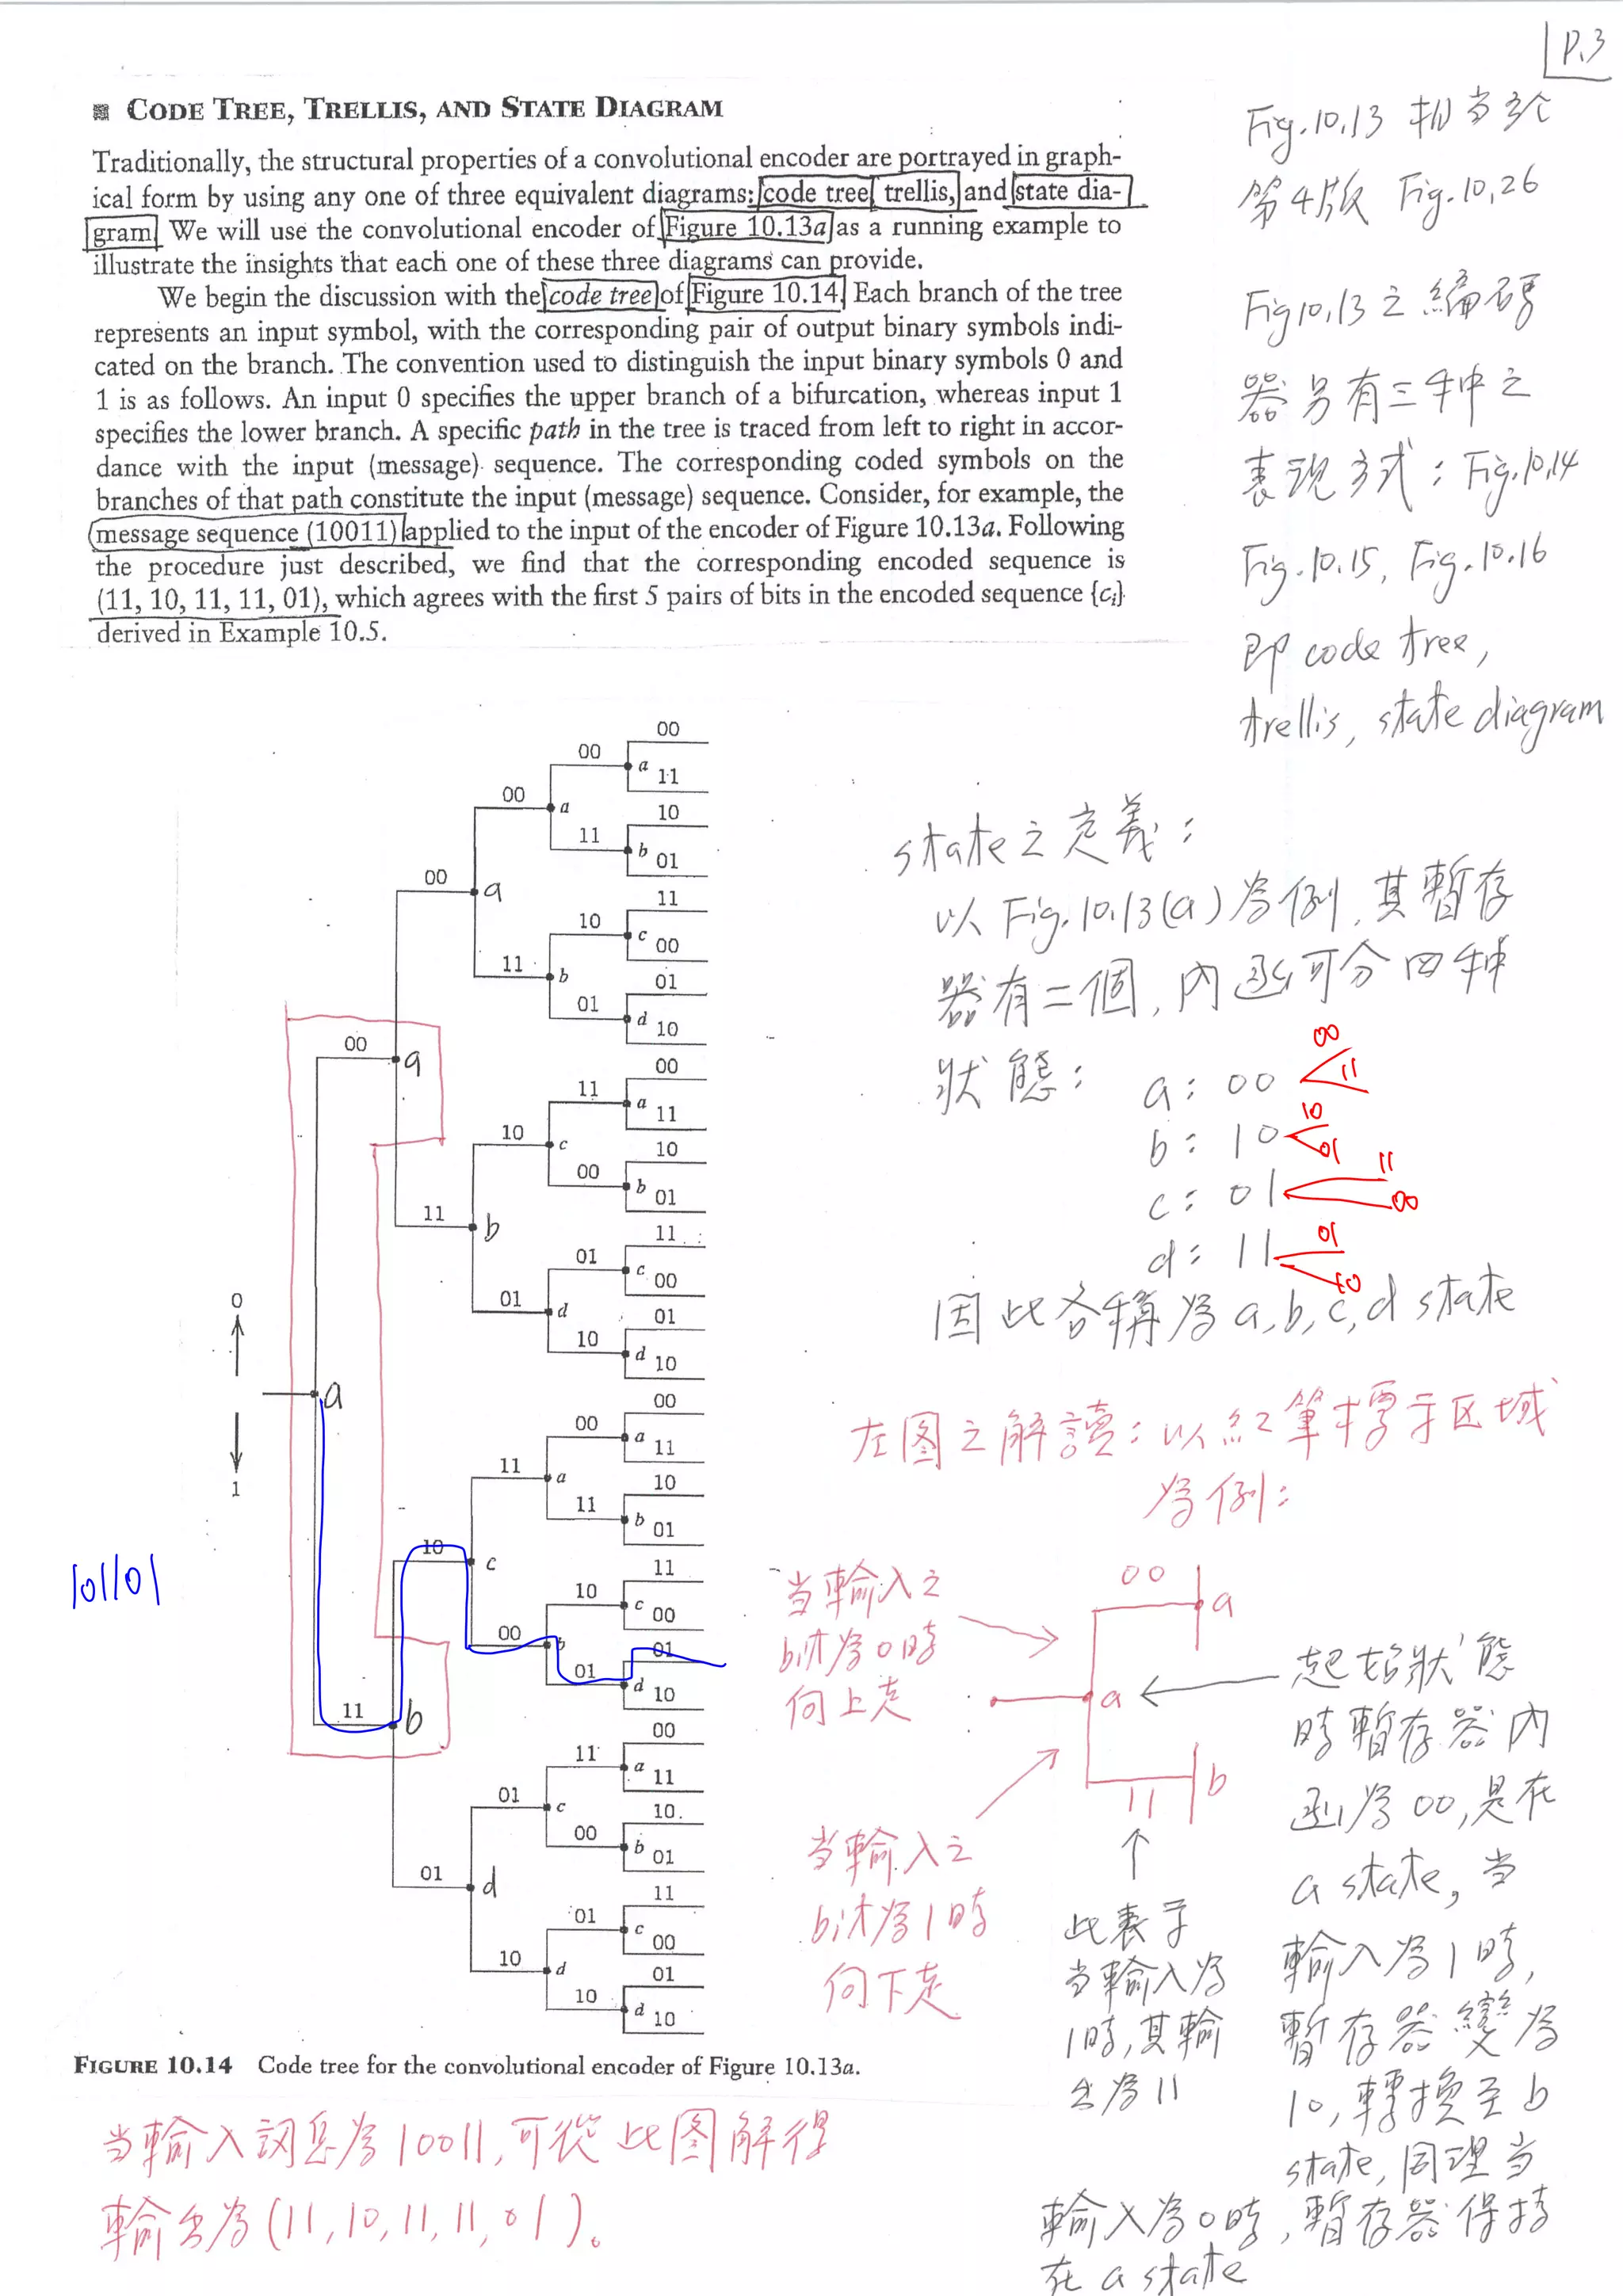 P.3
CODE TREE, TRELLIS, AND STATE DIAGRAM
Traditionally, the structural properties of a convolutional encoder are portrayed in graph-
ical form by using any one of three equivalent diagrams: code tree, trellis, and state dia-
gram. We will use the convolutional encoder of Figure 10.13a as a running example to
illustrate the insights that each one of these three diagrams can provide.
We begin the discussion with the code tree of Figure 10.14. Each branch of the tree
represents an input symbol, with the corresponding pair of output binary symbols indi-
cated on the branch. The convention used to distinguish the input binary symbols 0 and
1 is as follows. An input 0 specifies the upper branch of a bifurcation, whereas input 1
specifies the lower branch. A specific path in the tree is traced from left to right in accor-
dance with the input (message) sequence. The corresponding coded symbols on the
branches of that path constitute the input (message) sequence. Consider, for example, the
message sequence (10011) applied to the input of the encoder of Figure 10.13a. Following
the procedure just described, we find that the corresponding encoded sequence is
(11, 10, 11, 11, 01), which agrees with the first 5 pairs of bits in the encoded sequence {ci}
derived in Example 10.5.
Fig.10.13 相当於
第4版 Fig.10.26
Fig10.13之編碼
器另有三种之
表現方式：Fig.10.14
Fig.10.15, Fig.10.16
即 code tree,
trellis, state diagram
00
00
a
11
00
a
10
11
b
01
00
a
11
10
c
00
11
b
01
01
d
10
00
a
00
11
a
11
10
c
10
00
b
01
11
b
11
01
c
00
01
d
01
10
d
10
0
a
1
00
00
a
11
11
a
10
11
b
01
10
c
11
10
c
00
00
b
01
01
d
10
11
b
00
11
a
11
01
c
10
00
b
01
01
d
11
01
c
00
10
d
01
10
d
10
101101
FIGURE 10.14 Code tree for the convolutional encoder of Figure 10.13a.
state之定義：
以 Fig.10.13(a)為例,其暫存
器有二個,內函可分四种
狀態：
a: 00
00
11
b: 10
10
01
c: 01
11
00
d: 11
01
10
因此各稱為a,b,c,d state
左图之解讀：以紅筆標示区域
為例：
当輸入之
bit為0時
向上走
当輸入之
bit為1時
向下走
00
a
a
11
b
此表示
当輸入為
1時,其輸
出為11
起始狀態
時暫存器內
函為00,是在
a state, 当
輸入為1時,
暫存器變為
10,轉換至b
state,同理当
輸入為0時,暫存器保持
在 a state
当輸入訊息為10011,可從此图解得
輸出為(11,10,11,11,01)。